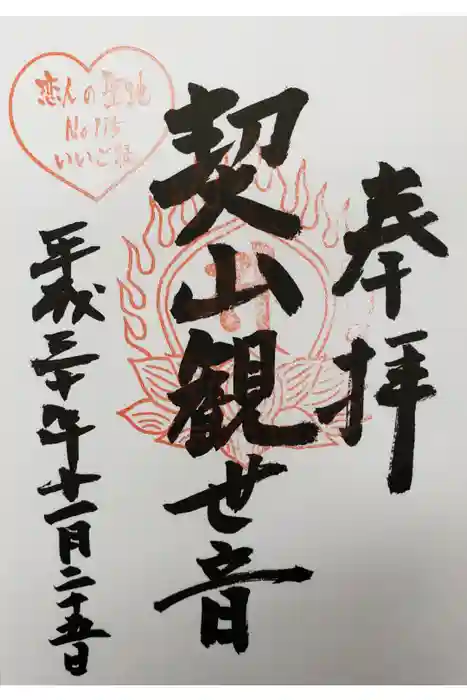 奉拝
契山観世音
恋人の聖地
No115
いいご縁
平成三十年十一月二十五日